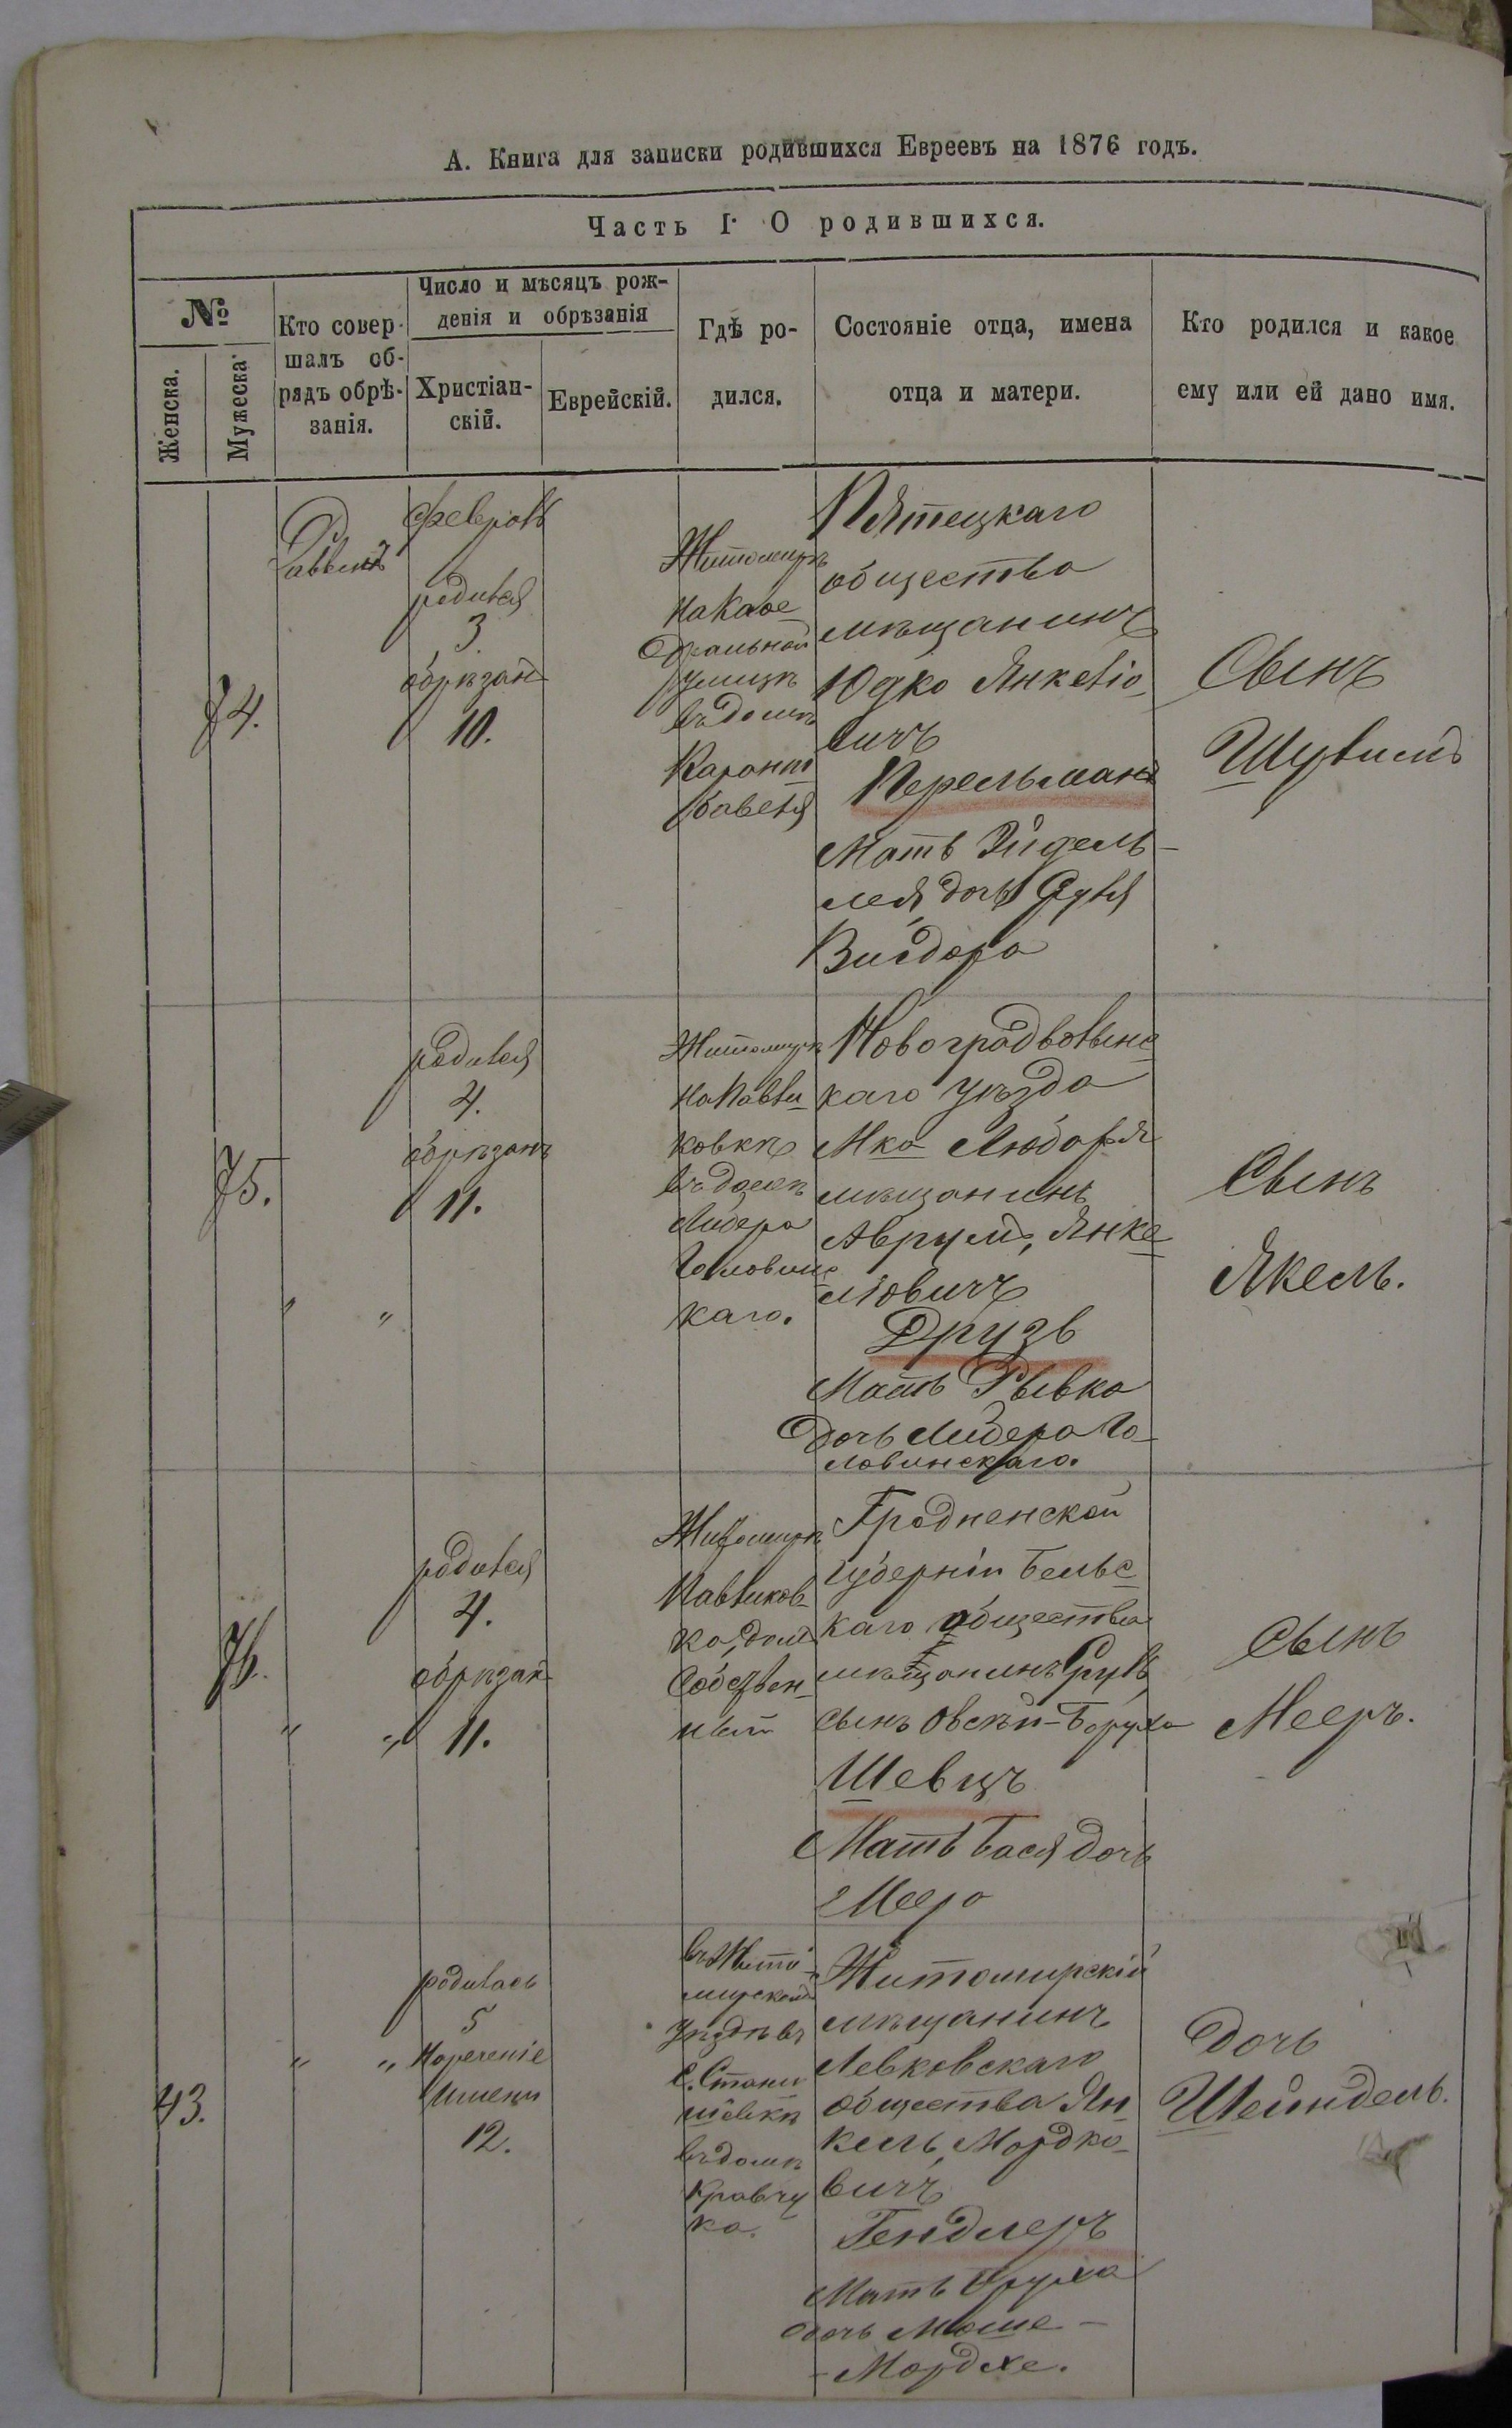 А. Книга для записки родившихся Евреевъ на 1876 годъ.
Часть I. О родившихся.
№
Женска.
Мужеска
Кто совер-
шалъ об-
рядъ обрѣ-
занія.
Число и мѣсяцъ рож-
денія и обрѣзанія
Христіан-
скій.
Еврейскій.
Гдѣ ро-
дился.
Состояніе отца, имена
отца и матери.
Кто родился и какое
ему или ей дано имя.
74.
Раввинъ
Февраль
родился
3
обрѣзан
10.
Житомиръ
на Кафе
дральной
улицѣ
въ домѣ
Пятецкаго
общества
мѣщанинъ
Юдко Янкеліо
вичъ
Перельманъ
Мать Эйдель-
лея дочь Сруля
Вигдора
Сынъ
Шулимъ
75.
"
"
родился
4.
обрѣзанъ
11.
Житомиръ
на Павли
ковкѣ
въ домѣ
Лидера
Головинс
каго.
Новоградволынс
каго уѣзда
М-ка Любара
мѣщанинъ
Аврумъ, Янке
ліовичъ
Друзь
Мать Рывка
дочь Лидера Го-
ловинскаго.
Сынъ
Якель.
76.
"
"
родился
4.
обрѣзан
11.
Житомиръ
Павликов-
ка, домъ
Собствен-
ный
Гродненской
губерніи Бельс
каго общества
мѣщанинъ Сруль
сынъ Овсѣй-Боруха
Шевцъ
Мать Бася дочь
Меера
Сынъ
Мееръ.
43.
"
"
родилась
5
Нареченіе
Имени
12.
въ Жито-
мирскомъ
уѣздѣ въ
с. Стани
шовкѣ
въ домѣ
Кравчу
ка.
Житомирскій
мѣщанинъ
Левковскаго
общества Ян
кель, Мордко-
вичъ
Гендлеръ
Мать Фрума
дочь Моше-
-Мордхе.
Дочь
Шейндель.